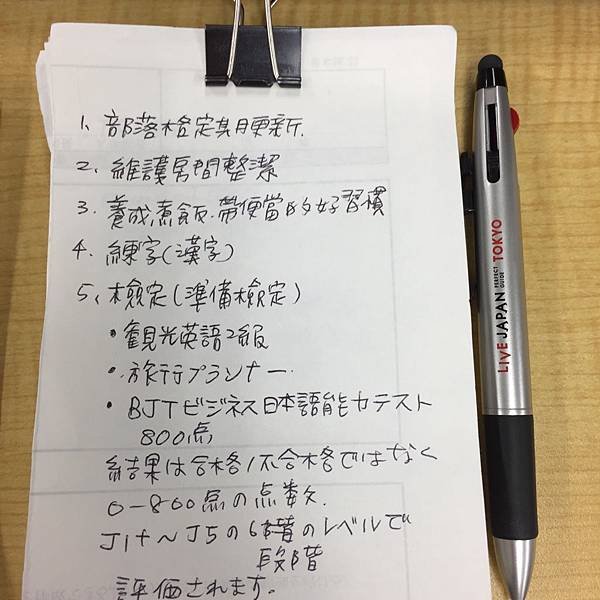 1、部落格定期更新.
2、維護房間整潔
3、養成煮飯.帶便當的好習慣
4、練字(漢字)
5、檢定(準備檢定)
・観光英語2級
・旅行プランナー
・BJTビジネス日本語能力テスト
800点
結果は合格/不合格ではなく
0-800点の点数.
J1+〜J5の6階のレベルで
段階
評価されます.
LIVE JAPAN PERFECT GUIDE TOKYO